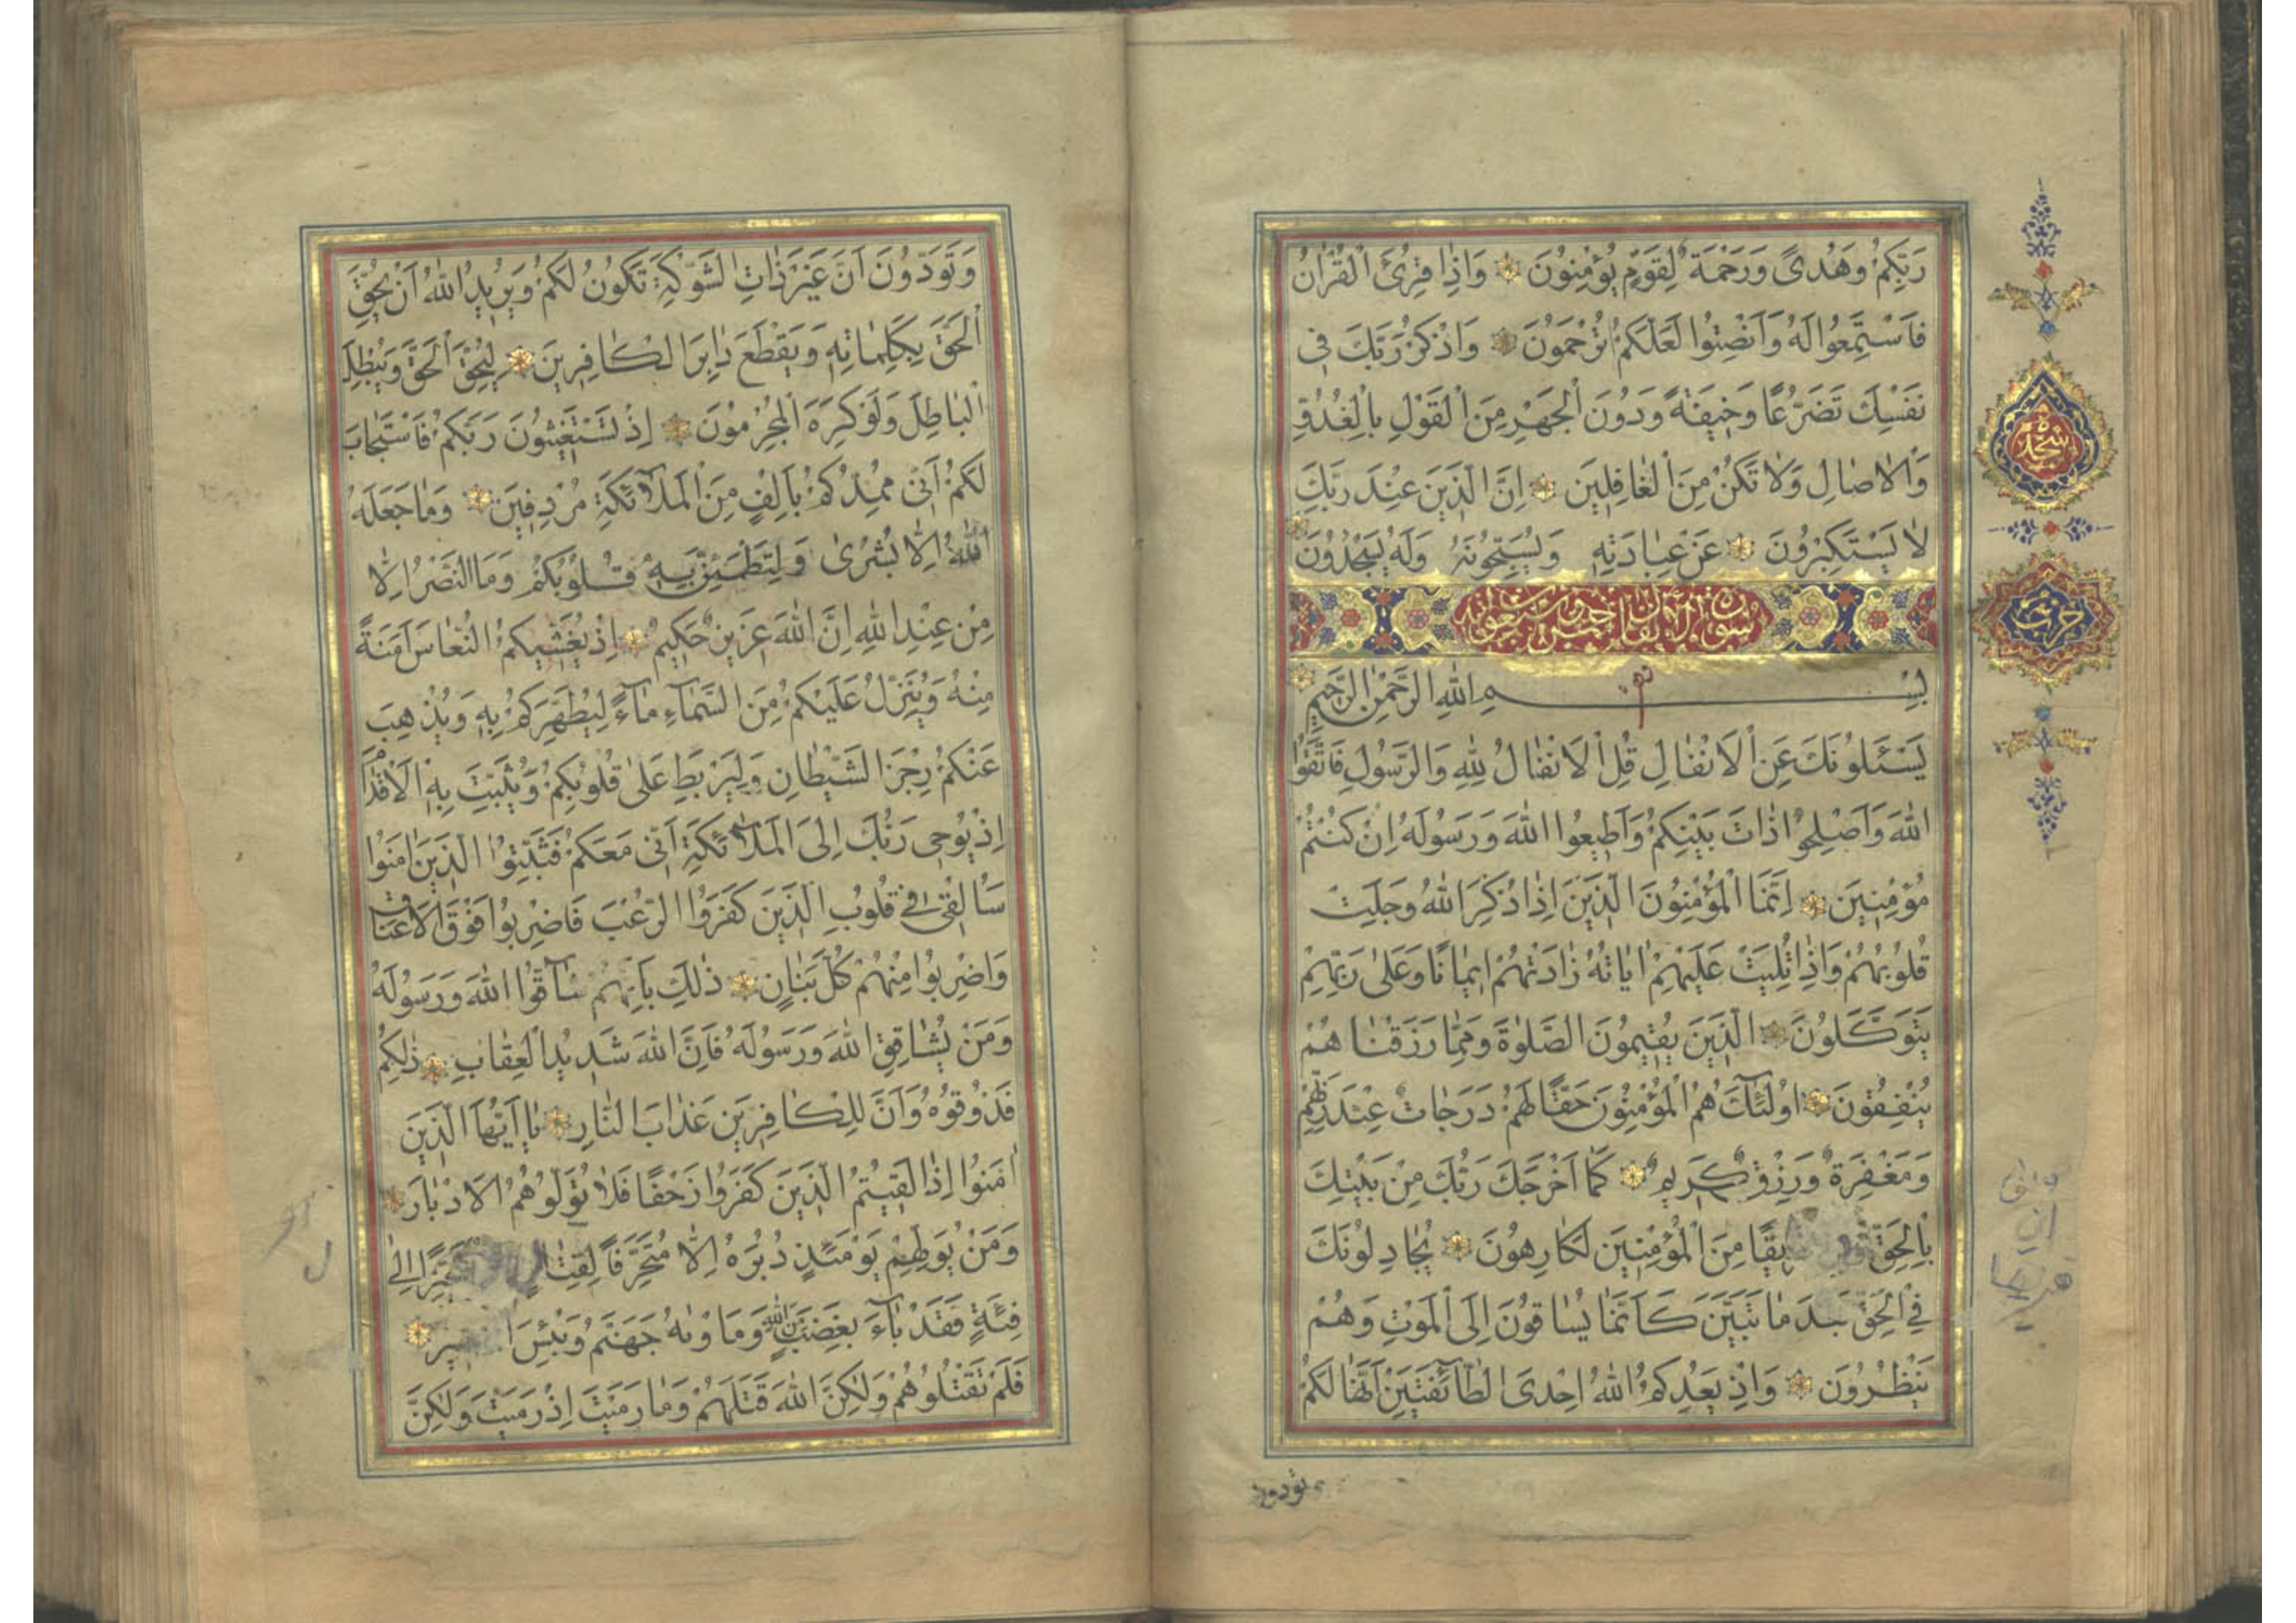 رَبِّكُمْ وَهُدًى وَرَحْمَةٌ لِقَوْمٍ يُؤْمِنُونَ وَاِذَا قُرِئَ الْقُرْاٰنُ
فَاسْتَمِعُوا لَهُ وَاَنْصِتُوا لَعَلَّكُمْ تُرْحَمُونَ وَاذْكُرْ رَبَّكَ فِى
نَفْسِكَ تَضَرُّعًا وَخِيفَةً وَدُونَ الْجَهْرِ مِنَ الْقَوْلِ بِالْغُدُوِّ
وَالْاٰصَالِ وَلَا تَكُنْ مِنَ الْغَافِلِينَ اِنَّ الَّذِينَ عِنْدَ رَبِّكَ
لَا يَسْتَكْبِرُونَ عَنْ عِبَادَتِهِ وَيُسَبِّحُونَهُ وَلَهُ يَسْجُدُونَ
سجده
حزب
بِسْمِ اللّٰهِ الرَّحْمٰنِ الرَّحِيمِ
يَسْـَٔلُونَكَ عَنِ الْاَنْفَالِ قُلِ الْاَنْفَالُ لِلّٰهِ وَالرَّسُولِ فَاتَّقُوا
اللّٰهَ وَاَصْلِحُوا ذَاتَ بَيْنِكُمْ وَاَطِيعُوا اللّٰهَ وَرَسُولَهُ اِنْ كُنْتُمْ
مُؤْمِنِينَ اِنَّمَا الْمُؤْمِنُونَ الَّذِينَ اِذَا ذُكِرَ اللّٰهُ وَجِلَتْ
قُلُوبُهُمْ وَاِذَا تُلِيَتْ عَلَيْهِمْ اٰيَاتُهُ زَادَتْهُمْ اِيمَانًا وَعَلٰى رَبِّهِمْ
يَتَوَكَّلُونَ الَّذِينَ يُقِيمُونَ الصَّلٰوةَ وَمِمَّا رَزَقْنَاهُمْ
يُنْفِقُونَ اُولٰٓئِكَ هُمُ الْمُؤْمِنُونَ حَقًّا لَهُمْ دَرَجَاتٌ عِنْدَ رَبِّهِمْ
وَمَغْفِرَةٌ وَرِزْقٌ كَرِيمٌ كَمَا اَخْرَجَكَ رَبُّكَ مِنْ بَيْتِكَ
بِالْحَقِّ مِنَ الْمُؤْمِنِينَ لَكَارِهُونَ يُجَادِلُونَكَ
فِى الْحَقِّ بَعْدَ مَا تَبَيَّنَ كَاَنَّمَا يُسَاقُونَ اِلَى الْمَوْتِ وَهُمْ
يَنْظُرُونَ وَاِذْ يَعِدُكُمُ اللّٰهُ اِحْدَى الطَّٓائِفَتَيْنِ اَنَّهَا لَكُمْ
وَتَوَدُّونَ اَنَّ غَيْرَ ذَاتِ الشَّوْكَةِ تَكُونُ لَكُمْ وَيُرِيدُ اللّٰهُ اَنْ يُحِقَّ
الْحَقَّ بِكَلِمَاتِهِ وَيَقْطَعَ دَابِرَ الْكَافِرِينَ لِيُحِقَّ الْحَقَّ وَيُبْطِلَ
الْبَاطِلَ وَلَوْ كَرِهَ الْمُجْرِمُونَ اِذْ تَسْتَغِيثُونَ رَبَّكُمْ فَاسْتَجَابَ
لَكُمْ اَنِّى مُمِدُّكُمْ بِاَلْفٍ مِنَ الْمَلٰٓائِكَةِ مُرْدِفِينَ وَمَا جَعَلَهُ
اللّٰهُ اِلَّا بُشْرٰى وَلِتَطْمَئِنَّ بِهِ قُلُوبُكُمْ وَمَا النَّصْرُ اِلَّا
مِنْ عِنْدِ اللّٰهِ اِنَّ اللّٰهَ عَزِيزٌ حَكِيمٌ اِذْ يُغَشِّيكُمُ النُّعَاسَ اَمَنَةً
مِنْهُ وَيُنَزِّلُ عَلَيْكُمْ مِنَ السَّمَٓاءِ مَٓاءً لِيُطَهِّرَكُمْ بِهِ وَيُذْهِبَ
عَنْكُمْ رِجْزَ الشَّيْطَانِ وَلِيَرْبِطَ عَلٰى قُلُوبِكُمْ وَيُثَبِّتَ بِهِ الْاَقْدَامَ
اِذْ يُوحِى رَبُّكَ اِلَى الْمَلٰٓائِكَةِ اَنِّى مَعَكُمْ فَثَبِّتُوا الَّذِينَ اٰمَنُوا
سَاُلْقِى فِى قُلُوبِ الَّذِينَ كَفَرُوا الرُّعْبَ فَاضْرِبُوا فَوْقَ الْاَعْنَاقِ
وَاضْرِبُوا مِنْهُمْ كُلَّ بَنَانٍ ذٰلِكَ بِاَنَّهُمْ شَٓاقُّوا اللّٰهَ وَرَسُولَهُ
وَمَنْ يُشَاقِقِ اللّٰهَ وَرَسُولَهُ فَاِنَّ اللّٰهَ شَدِيدُ الْعِقَابِ ذٰلِكُمْ
فَذُوقُوهُ وَاَنَّ لِلْكَافِرِينَ عَذَابَ النَّارِ يَٓا اَيُّهَا الَّذِينَ
اٰمَنُوا اِذَا لَقِيتُمُ الَّذِينَ كَفَرُوا زَحْفًا فَلَا تُوَلُّوهُمُ الْاَدْبَارَ
وَمَنْ يُوَلِّهِمْ يَوْمَئِذٍ دُبُرَهُ اِلَّا مُتَحَرِّفًا لِقِتَالٍ اِلٰى
فِئَةٍ فَقَدْ بَٓاءَ بِغَضَبٍ مِنَ اللّٰهِ وَمَاْوٰيهُ جَهَنَّمُ وَبِئْسَ
فَلَمْ تَقْتُلُوهُمْ وَلٰكِنَّ اللّٰهَ قَتَلَهُمْ وَمَا رَمَيْتَ اِذْ رَمَيْتَ وَلٰكِنَّ